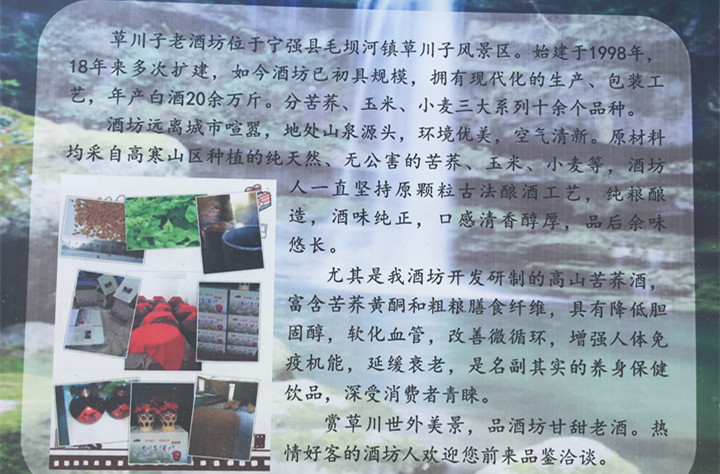 草川子老酒坊位于宁强县毛坝河镇草川子风景区。始建于1998年，
18年来多次扩建，如今酒坊已初具规模，拥有现代化的生产、包装工
艺，年产白酒20余万斤。分苦荞、玉米、小麦三大系列十余个品种。
酒坊远离城市喧嚣，地处山泉源头，环境优美，空气清新。原材料
均采自高寒山区种植的纯天然、无公害的苦荞、玉米、小麦等，酒坊
人一直坚持原颗粒古法酿酒工艺，纯粮酿
造，酒味纯正，口感清香醇厚，品后余味
悠长。
尤其是我酒坊开发研制的高山苦荞酒，
富含苦荞黄酮和粗粮膳食纤维，具有降低胆
固醇，软化血管，改善微循环，增强人体免
疫机能，延缓衰老，是名副其实的养身保健
饮品，深受消费者青睐。
赏草川世外美景，品酒坊甘甜老酒。热
情好客的酒坊人欢迎您前来品鉴洽谈。